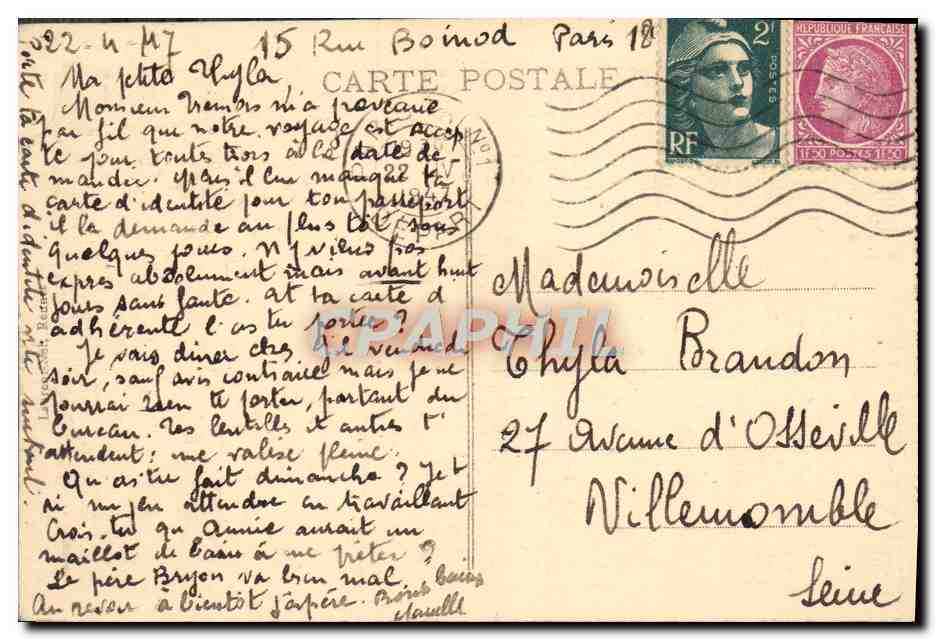 22-4-47 15 Rue Boinod Paris 18
Ma ptite Thyla
CARTE POSTALE
Monsieur m'a
par fil que notre voyage est accep
té pour toutes trois à la date de
mandée. Mais il lui manque ta
carte d'identité pour ton passeport
il la demande au plus tôt sous
quelques jours. N'y viens pas
exprès absolument mais avant huit
jours sans faute. et ta carte d
adhérente l'as tu portée?
Je vais diner chez vendredi
soir, sauf avis contraire mais je ne
pourrai rien te porter, partant du
bureau. Tes lentilles et autres t'
attendent: une valise pleine.
Qu'as tu fait dimanche? Je t
ai un peu attendue en travaillant
Crois-tu qu'Annie aurait un
maillot de bains à me prêter?
Le père Bryon va bien mal.
Au revoir à bientôt j'espère. Bons baisers
porte ta carte d'identité vite surtout.
Mademoiselle
Thyla Brandon
27 Avenue d'Osseville
Villemomble
Seine
2F
POSTES
RF
REPUBLIQUE FRANÇAISE
1F50 POSTES 1F50
N°1
22
CPAPHIL